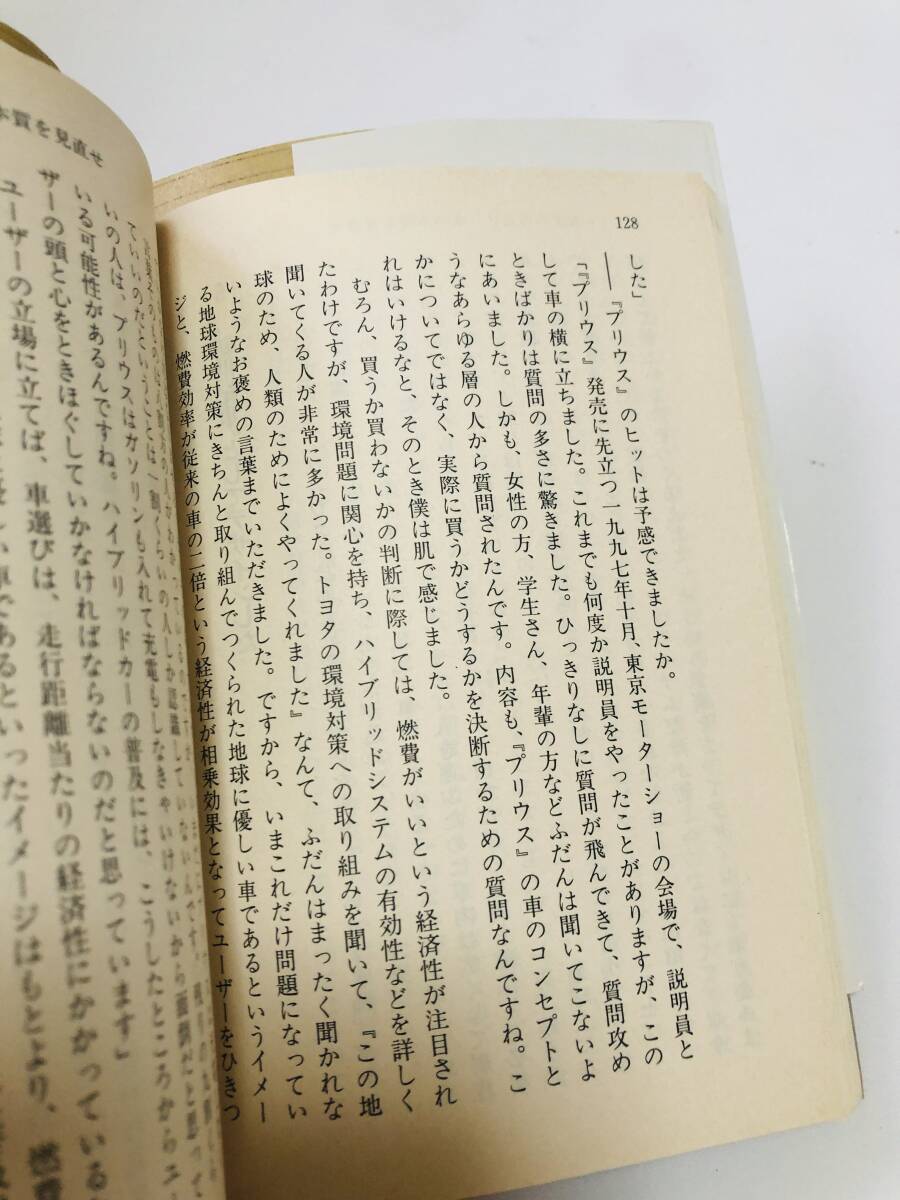 128
した」
――『プリウス』のヒットは予感できましたか。
「『プリウス』発売に先立つ一九九七年十月、東京モーターショーの会場で、説明員と
して車の横に立ちました。これまでも何度か説明員をやったことがありますが、この
ときばかりは質問の多さに驚きました。ひっきりなしに質問が飛んできて、質問攻め
にあいました。しかも、女性の方、学生さん、年輩の方などふだんは聞いてこないよ
うなあらゆる層の人から質問されたんです。内容も、『プリウス』の車のコンセプトと
かについてではなく、実際に買うかどうするかを決断するための質問なんですね。こ
れはいけるなと、そのとき僕は肌で感じました。
むろん、買うか買わないかの判断に際しては、燃費がいいという経済性が注目され
たわけですが、環境問題に関心を持ち、ハイブリッドシステムの有効性などを詳しく
聞いてくる人が非常に多かった。トヨタの環境対策への取り組みを聞いて、『この地
球のため、人類のためによくやってくれました』なんて、ふだんはまったく聞かれな
いようなお褒めの言葉までいただきました。ですから、いまこれだけ問題になってい
る地球環境対策にきちんと取り組んでつくられた地球に優しい車であるというイメー
ジと、燃費効率が従来の車の二倍という経済性が相乗効果となってユーザーをひきつ
質を見直せ
いの人は、プリウスはガソリンも入れて充電もしなきゃいけないから面倒だと思って
いる可能性があるんですね。ハイブリッドカーの普及には、こうしたところからユー
ザーの頭と心をときほぐしていかなければならないのだと思っています」
ユーザーの立場に立てば、車選びは、走行距離当たりの経済性にかかっている
車であるといったイメージはもとより、燃